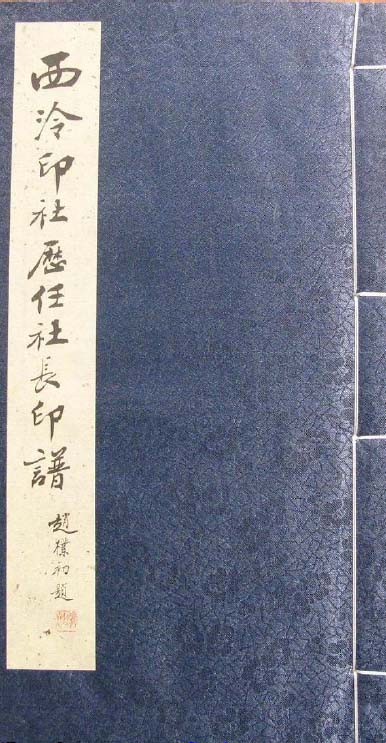 西泠印社歷任社長印譜
趙樸初題